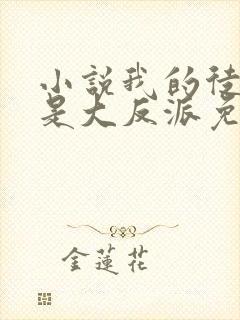 小說我的徒
是大反派免
金蓮花